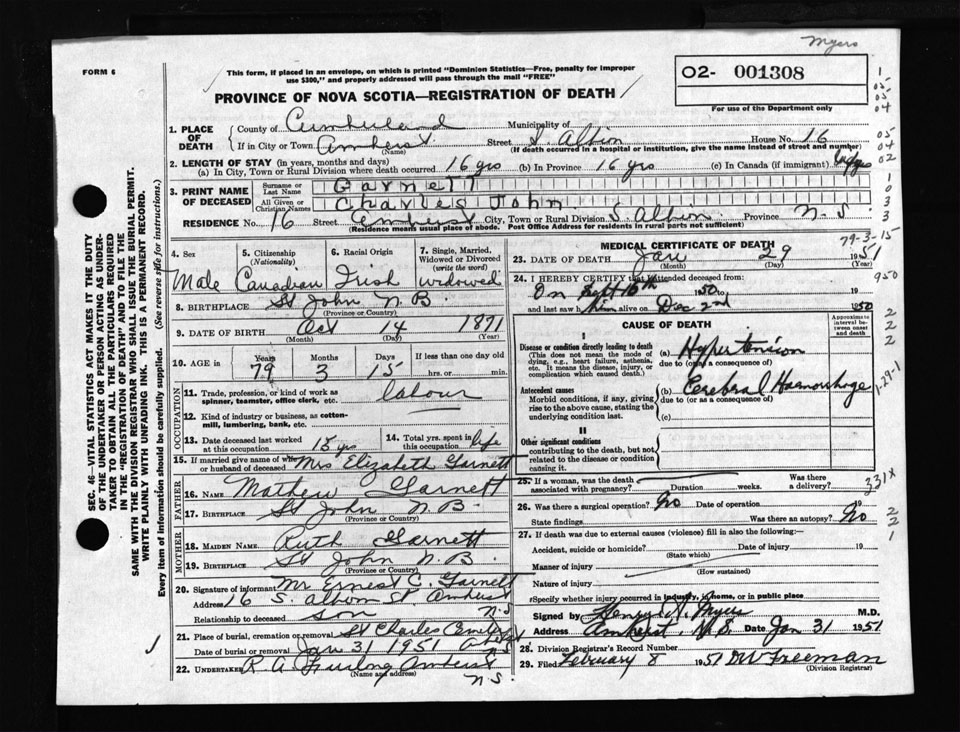 Myers
FORM 6
This form, if placed in an envelope, on which is printed "Dominion Statistics—Free, penalty for improper
use $300," and properly addressed will pass through the mail "FREE"
PROVINCE OF NOVA SCOTIA—REGISTRATION OF DEATH
02- 001308
For use of the Department only
1. PLACE OF DEATH
County of Cumberland Municipality of
If in City or Town Amherst (Name) Street S. Albion House No. 16
(If death occurred in a hospital or institution, give the name instead of street and number)
2. LENGTH OF STAY (in years, months and days)
(a) In City, Town or Rural Division where death occurred 16 yrs (b) In Province 16 yrs (c) In Canada (if immigrant)
3. PRINT NAME OF DECEASED
Surname or Last Name Garnett
All Given or Christian Names Charles John
RESIDENCE No. 16 Street Amherst City, Town or Rural Division S. Albin Province N.S.
(Residence means usual place of abode. Post Office Address for residents in rural parts not sufficient)
4. Sex Male
5. Citizenship (Nationality) Canadian
6. Racial Origin Irish
7. Single, Married, Widowed or Divorced (write the word) widowed
8. BIRTHPLACE St John N.B.
(Province or Country)
9. DATE OF BIRTH Oct 14 1871
(Month) (Day) (Year)
10. AGE in Years 79 Months 3 Days 15 If less than one day old hrs. or min.
OCCUPATION
11. Trade, profession, or kind of work as spinner, teamster, office clerk, etc. labour
12. Kind of industry or business, as cotton-mill, lumbering, bank, etc.
13. Date deceased last worked at this occupation 15 yrs
14. Total yrs. spent in this occupation life
15. If married give name of wife or husband of deceased Mrs Elizabeth Garnett
FATHER
16. NAME Mathew Garnett
17. BIRTHPLACE St John N.B.
(Province or Country)
MOTHER
18. MAIDEN NAME Ruth Garnett
19. BIRTHPLACE St John N.B.
(Province or Country)
20. Signature of informant Mr Ernest C. Garnett
Address 16 S. Albom St. Amherst N.S
Relationship to deceased son
21. Place of burial, cremation or removal St Charles
Date of burial or removal Jan 31 1951
22. UNDERTAKER R A Furlong Amherst N.S.
(Name and address)
MEDICAL CERTIFICATE OF DEATH
79-3-15
23. DATE OF DEATH Jan 29 1951
(Month) (Day) (Year)
24. I HEREBY CERTIFY that I attended deceased from:
On Sept 16th 1950 to 19
and last saw him alive on Dec 2nd 1950
CAUSE OF DEATH
Approximate interval between onset and death
I
Disease or condition directly leading to death
(This does not mean the mode of dying, e.g., heart failure, asthenia, etc. It means the disease, injury, or complication which caused death.)
(a) Hypertension
due to (or as a consequence of)
Antecedent causes
Morbid conditions, if any, giving rise to the above cause, stating the underlying condition last.
(b) Cerebral Haemorrhage
due to (or as a consequence of)
(c)
II
Other significant conditions
contributing to the death, but not related to the disease or condition causing it.
25. If a woman, was the death associated with pregnancy? Duration weeks. Was there a delivery?
331X
26. Was there a surgical operation? No Date of operation 19
State findings Was there an autopsy? No
27. If death was due to external causes (violence) fill in also the following:—
Accident, suicide or homicide? Date of injury 19
(State which)
Manner of injury
(How sustained)
Nature of injury
Specify whether injury occurred in industry, in home, or in public place
Signed by Henry A. Myers M.D.
Address Amherst, N.S. Date Jan 31 1951
28. Division Registrar's Record Number
29. Filed February 8 1951 Freeman
(Division Registrar)
SEC. 46—VITAL STATISTICS ACT MAKES IT THE DUTY
OF THE UNDERTAKER OR PERSON ACTING AS UNDER-
TAKER TO OBTAIN ALL THE PARTICULARS REQUIRED
IN THE "REGISTRATION OF DEATH" AND TO FILE THE
SAME WITH THE DIVISION REGISTRAR WHO SHALL ISSUE THE BURIAL PERMIT.
WRITE PLAINLY WITH UNFADING INK. THIS IS A PERMANENT RECORD.
Every item of information should be carefully supplied. (See reverse side for instructions.)
950
1-29-1